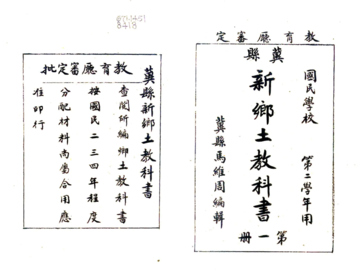 教育廳審定
冀縣
國民學校 第二學年用
新鄉土教科書 第一册
冀縣馬維周編輯
冀縣新鄉土教科書
教育廳審定批
查閱所編鄉土教科書
按國民二三四年程度
分配材料尚屬合用應
准印行